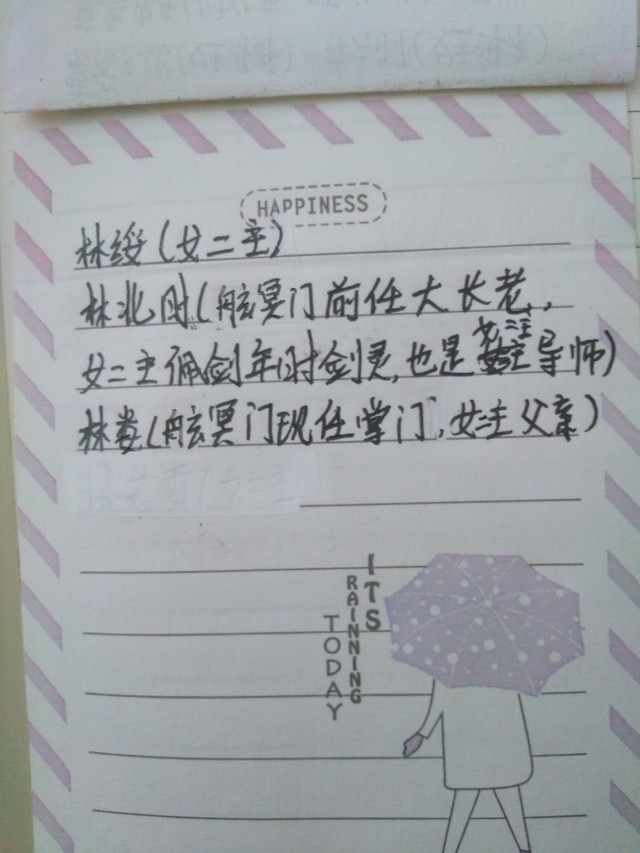 HAPPINESS
林绥(女二主)
林北时(舷冥门前任大长老,
女二主佩剑年时剑灵,也是女二主导师)
林卷(舷冥门现任掌门,女二主父亲)
ITS
RAINNING
TODAY